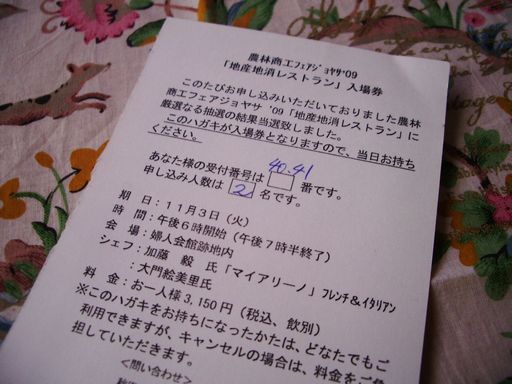 農林商工フェアジョヤサ'09
「地産地消レストラン」入場券
このたびお申し込みいただいておりました農林
商工フェアジョヤサ '09「地産地消レストラン」に
厳選なる抽選の結果当選致しました。
このハガキが入場券となりますので、当日お持ち
ください。
あなた様の受付番号は 40.41 番です。
申し込み人数は 2 名です。
期 日：11月3日（火）
時 間：午後6時開始（午後7時半終了）
会 場：婦人会館跡地内
シェフ：加藤 毅 氏「マイアリーノ」フレンチ&イタリアン
：大門絵美里氏
料 金：お一人様3,150円（税込、飲別）
※このハガキをお持ちになったかたは、どなたでもご
利用できますが、キャンセルの場合は、料金をご負
担していただきます。
<問い合わせ>